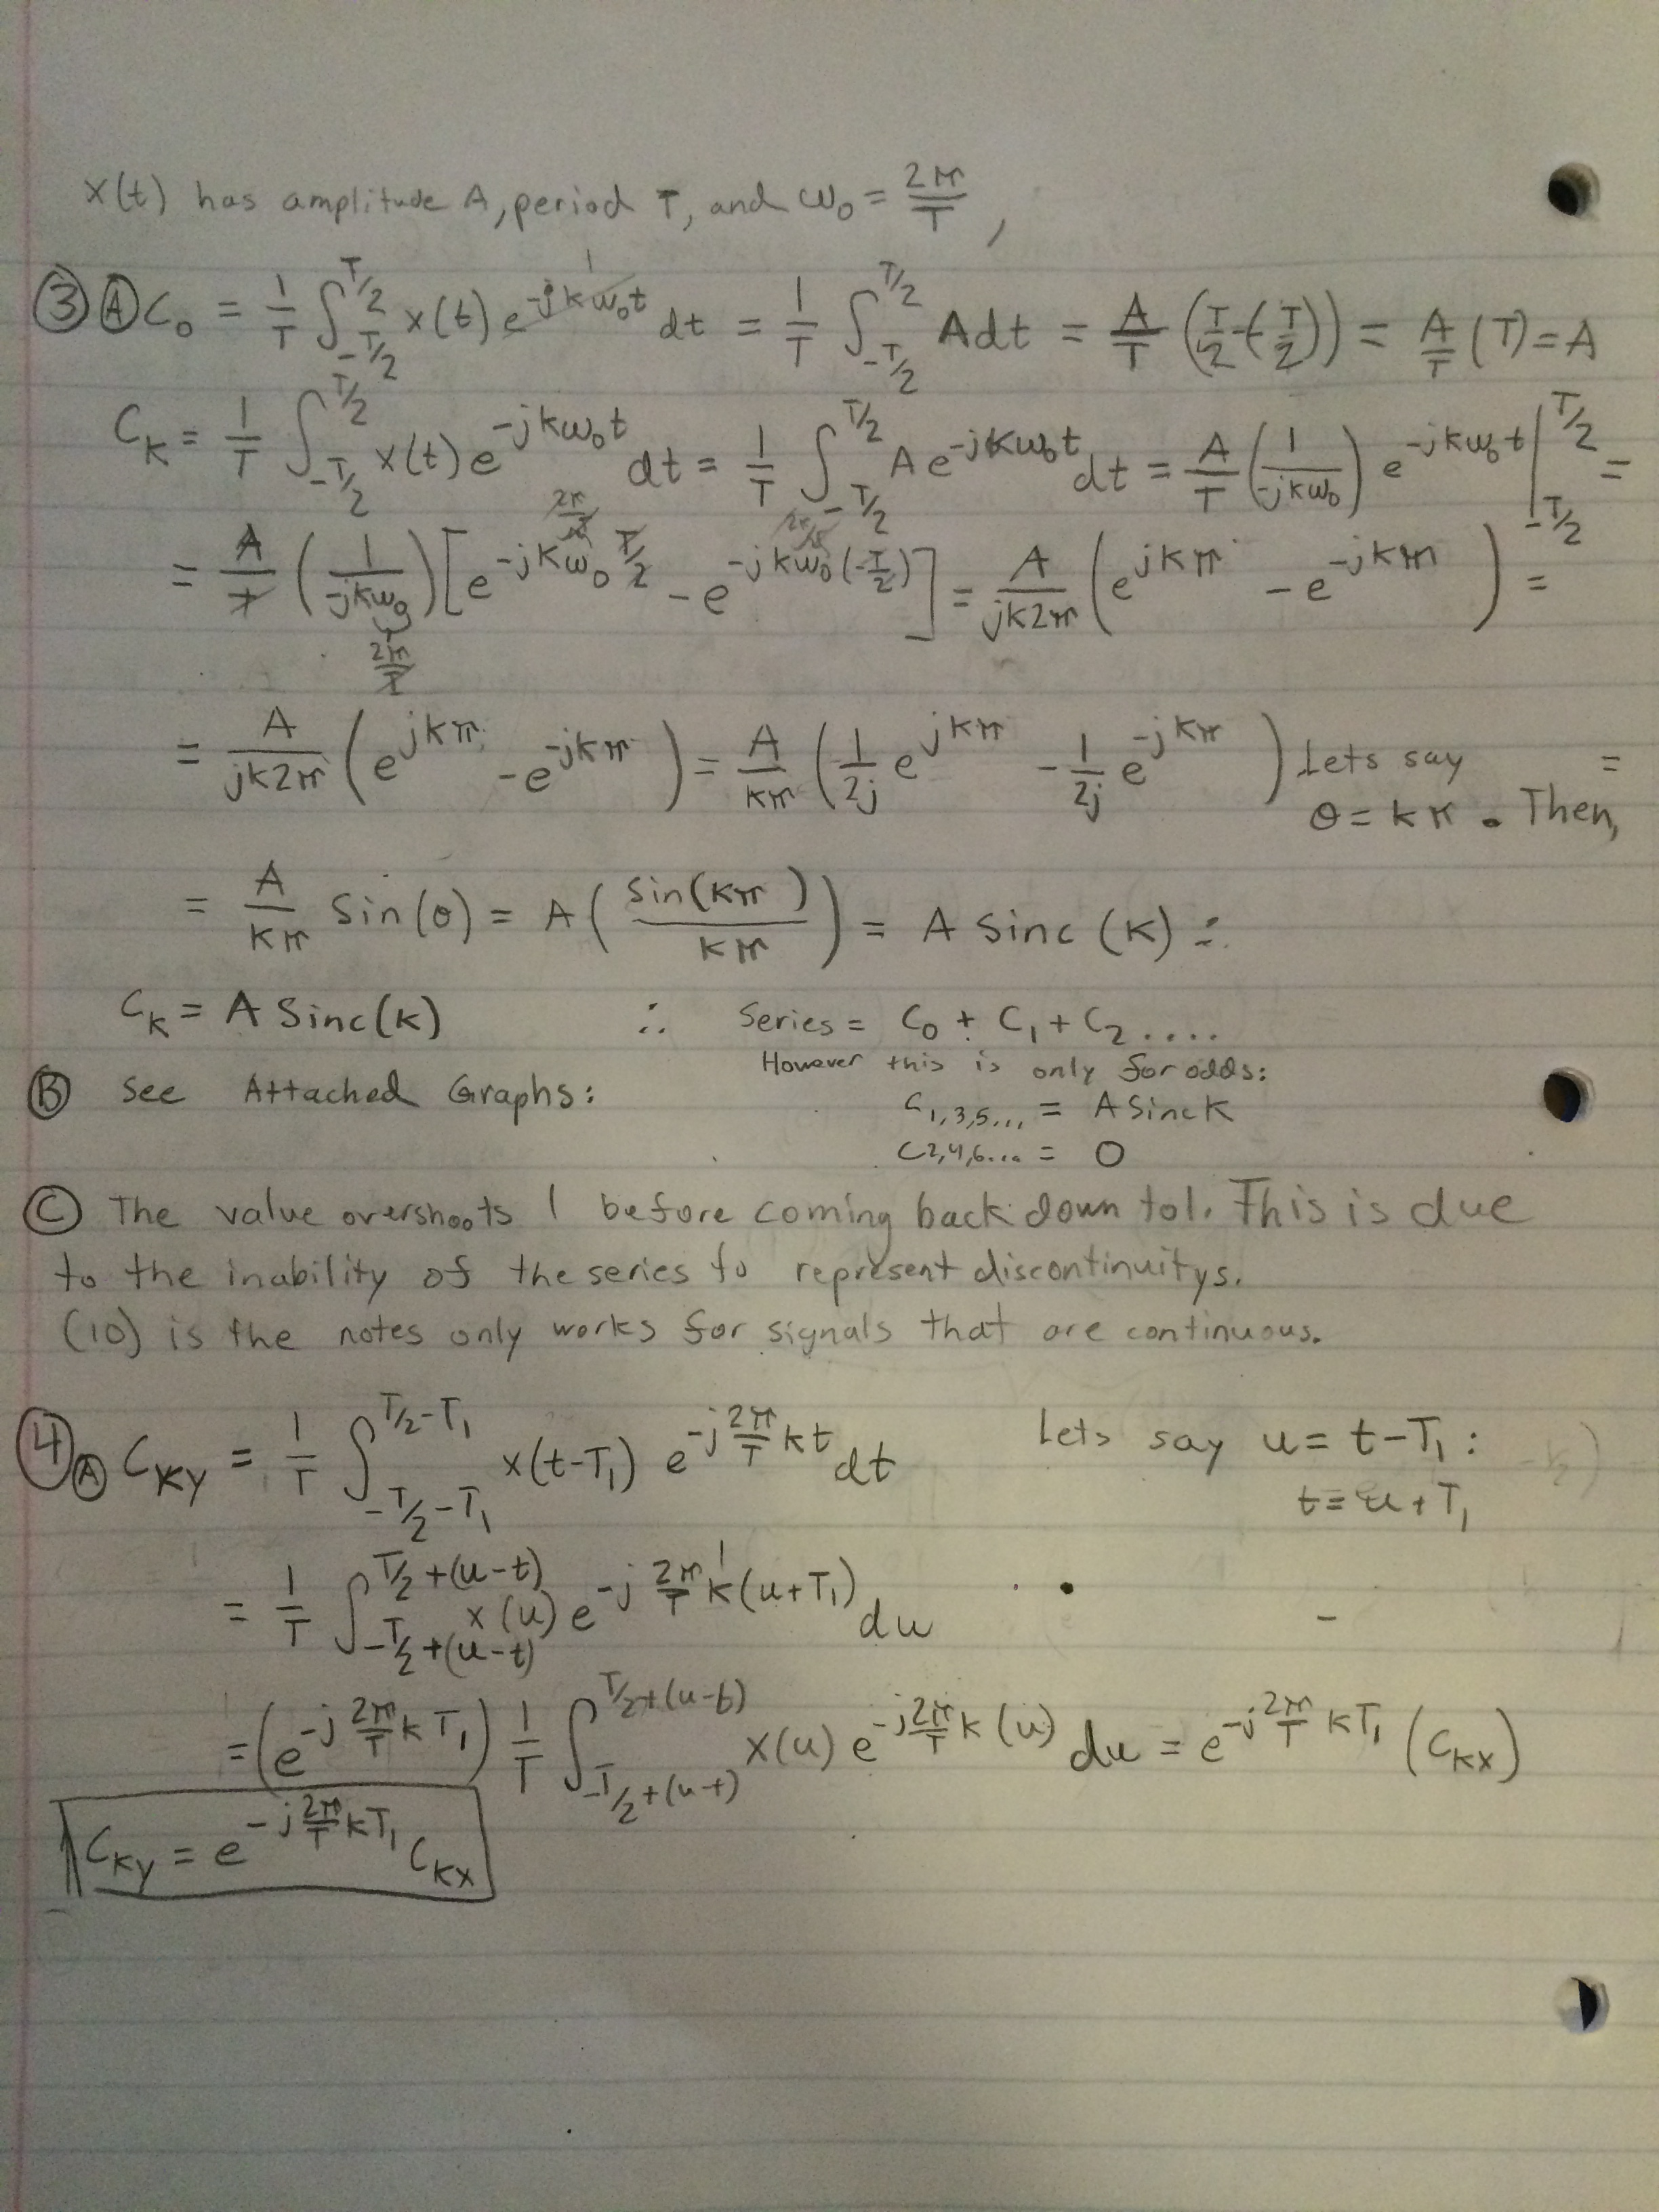 x(t) has amplitude A, period T, and ω₀ = 2π/T ,
③ Ⓐ C₀ = 1/T ∫_{-T/2}^{T/2} x(t) e^{-jkω₀t} 1 dt = 1/T ∫_{-T/2}^{T/2} A dt = A/T (T/2 - (-T/2)) = A/T (T) = A
C_K = 1/T ∫_{-T/2}^{T/2} x(t) e^{-jkω₀t} dt = 1/T ∫_{-T/2}^{T/2} A e^{-jkω₀t} dt = A/T (1/(-jkω₀)) e^{-jkω₀t} |_{-T/2}^{T/2} =
= A/T (1/(-jkω₀)) [e^{-jkω₀ T/2} - e^{-jkω₀(-T/2)}] = A/(jk2π) (e^{jkπ} - e^{-jkπ}) =
2π/T
= A/(jk2π) (e^{jkπ} - e^{-jkπ}) = A/(kπ) (1/2j e^{jkπ} - 1/2j e^{-jkπ}) Lets say =
θ = kπ. Then,
= A/(kπ) Sin(θ) = A (Sin(kπ)/(kπ)) = A Sinc (K) ∴
C_K = A Sinc(K) ∴ Series = C₀ + C₁ + C₂ ....
However this is only for odds:
Ⓑ See Attached Graphs: C_{1,3,5...} = A Sinc K
C_{2,4,6...} = 0
Ⓒ The value overshoots 1 before coming back down to 1. This is due
to the inability of the series to represent discontinuitys.
(10) is the notes only works for signals that are continuous.
④ Ⓐ C_{KY} = 1/T ∫_{-T/2-T₁}^{T/2-T₁} x(t-T₁) e^{-j 2π/T kt} dt Lets say u = t-T₁ :
t = u + T₁
= 1/T ∫_{-T/2+(u-t)}^{T/2+(u-t)} x(u) e^{-j 2π/T k(u+T₁)} du
= (e^{-j 2π/T kT₁}) 1/T ∫_{-T/2+(u-t)}^{T/2+(u-t)} x(u) e^{-j 2π/T k(u)} du = e^{-j 2π/T kT₁} (C_{KX})
C_{KY} = e^{-j 2π/T kT₁} C_{KX}